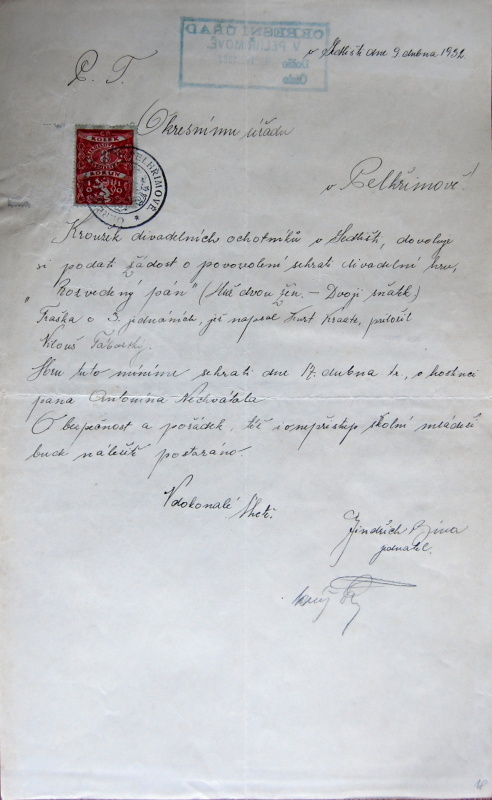 v Sedlišti dne 9. dubna 1932.
OKRESNÍ ÚŘAD
V PELHŘIMOVĚ
Došlo
Číslo
P. T.
Okresnímu úřadu
v Pelhřimově!
KOLEK
8
KORUN
PELHŘIMOVĚ
Kroužek divadelních ochotníků v Sedlišti, dovoluje
si podati žádost o povolení sehrati divadelní hru,
"Rozvedený pán" (Muž dvou žen. – Dvojí sňatek)
Fraška o 3. jednáních, jež napsal Kurt Kraatz, přeložil
Táborský.
Hru tuto míníme sehrati dne 17. dubna t.r., v hostinci
pana Antonína Nechvátala.
O bezpečnost a pořádek, též i nepřístup školní mládeže
bude náležitě postaráno.
V dokonalé úctě.
Jindřich
jednatel.